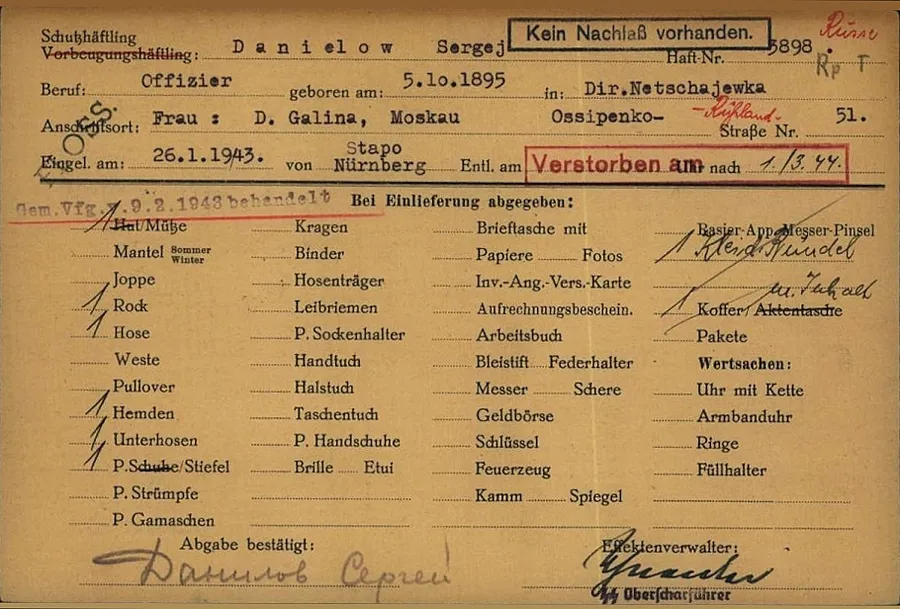 Schutzhäftling
Vorbeugungshäftling: Danielow Sergej Kein Nachlaß vorhanden. Haft-Nr. 5898. Russe
Rp T
Beruf: Offizier geboren am: 5.10.1895 in: Dir.Netschajewka
Anschriftsort: Frau: D. Galina, Moskau Ossipenko- -Rußland- Straße Nr. 51.
Eingel. am: 26.1.1943. von Stapo Nürnberg Entl. am Verstorben am Uhr nach 1./3.44.
Gem.Vfg.v.9.2.1943 behandelt Bei Einlieferung abgegeben:
1 Hut/Mütze Kragen Brieftasche mit Rasier-App. Messer-Pinsel
Mantel Sommer Winter Binder Papiere Fotos 1 Kleid. Bündel
Joppe Hosenträger Inv.-Ang.-Vers.-Karte m. Inhalt
1 Rock Leibriemen Aufrechnungsbeschein. 1 Koffer/Aktentasche
1 Hose P. Sockenhalter Arbeitsbuch Pakete
Weste Handtuch Bleistift Federhalter Wertsachen:
Pullover Halstuch Messer Schere Uhr mit Kette
1 Hemden Taschentuch Geldbörse Armbanduhr
1 Unterhosen P. Handschuhe Schlüssel Ringe
1 P.Schuhe/Stiefel Brille Etui Feuerzeug Füllhalter
P. Strümpfe Kamm Spiegel
P. Gamaschen
Abgabe bestätigt: Effektenverwalter:
Данилов Сергей
SS Oberscharführer